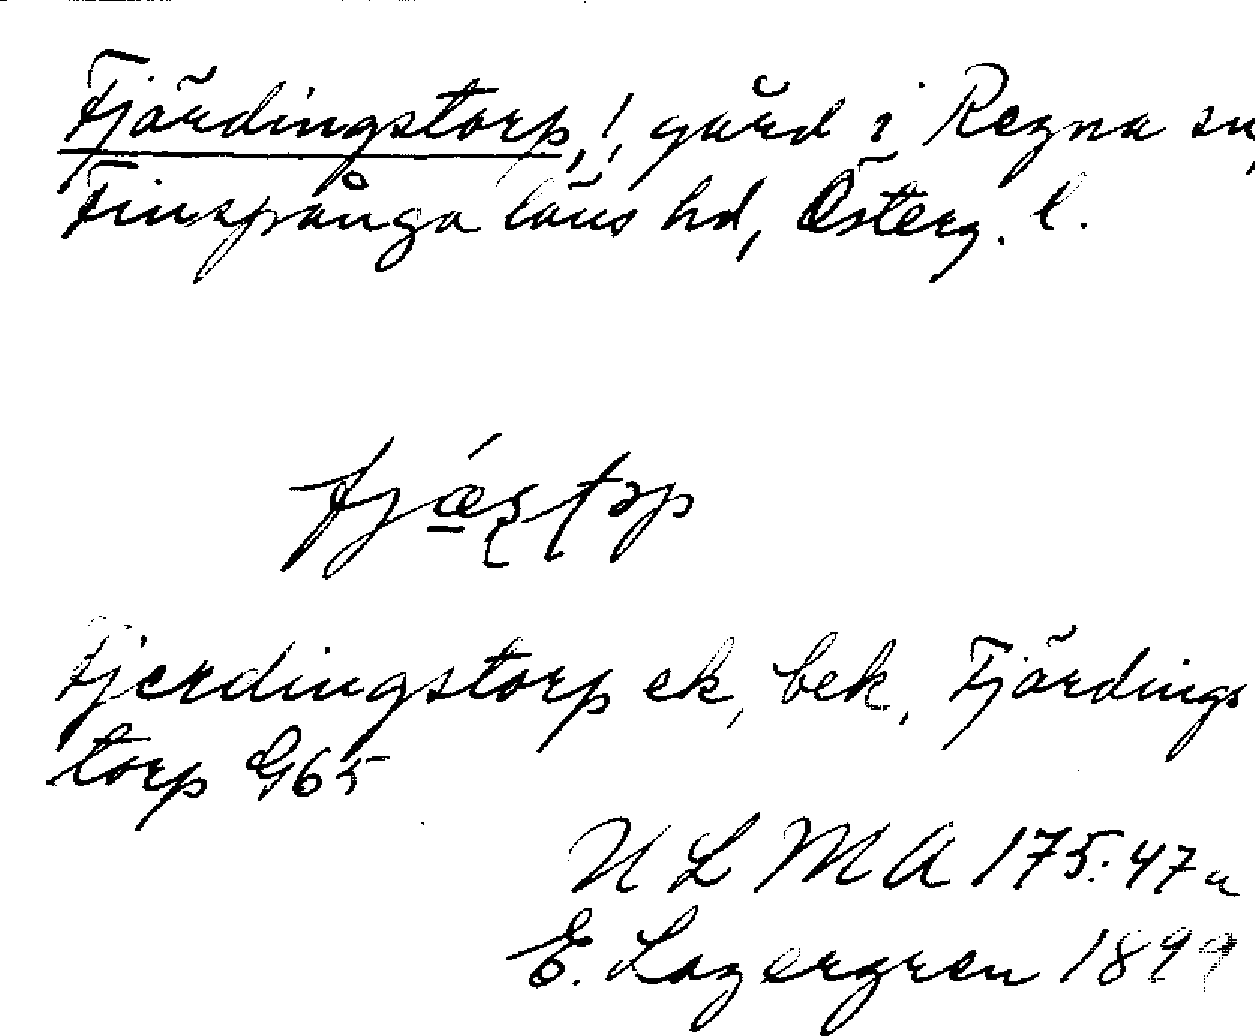 Fjärdingstorp, !, gård i Regna sn,
Finspånga läns hd, Österg. l.
Fjerdingstorp ek, bek, Fjärdings
torp G65
ULMA 175:47a
E. Lagergren 1899